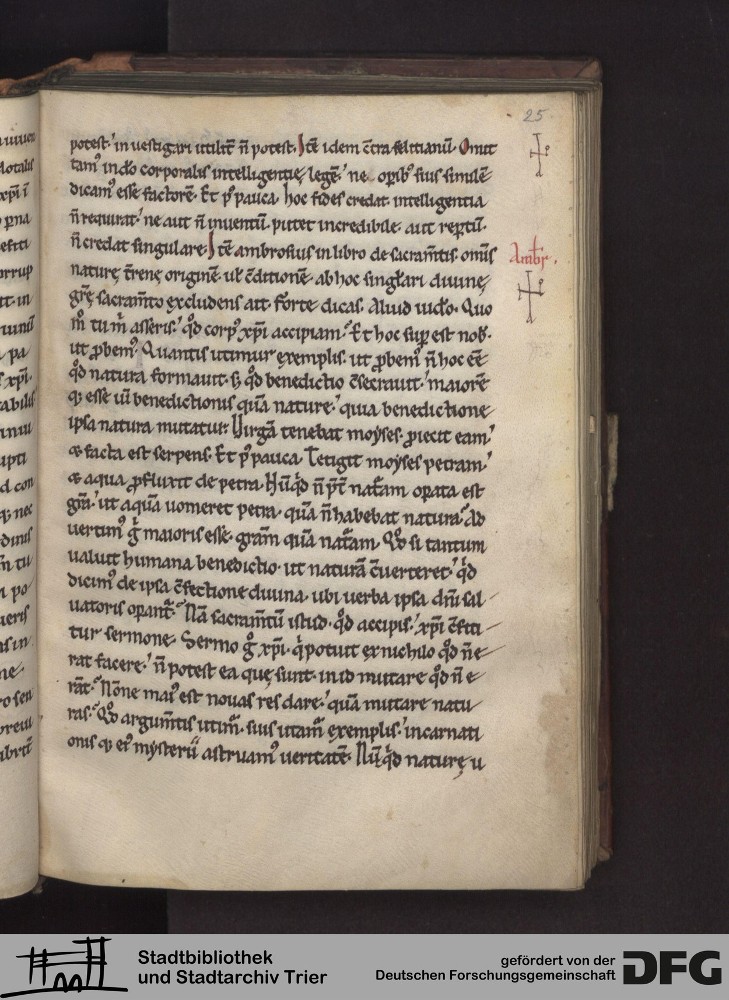 25
potest᛫ in uestigari utilit̄ n̄ potest. Itē idem c̄tra felitianū. Omit
tamꝰ in dō corporalis intelligentię legē᛫ ne oꝑibꝰ suis similē
dicamꝰ esse factorē. Et pꝰ pauca. hoc fides credat. intelligentia
n̄ requirat᛫ ne aut n̄ inuentū. putet incredibile. aut reꝑtū.
n̄ credat singulare. Itē ambrosius in libro de sacram̄tis. om̄is
Ambr̄.
naturę t̄renę originē. uł c̄ditionē. ab hoc singłari diuinę
gr̄ę sacram̄to excludens ait. Forte dicas. Aliud uideo. Quo
m̊ tu m̄ asseris᛫ qd̄ corpꝰ xp̄i accipiam. Et hoc suꝑ est nob̄.
ut ꝓbemꝰ. Quantis utimur exemplis. ut ꝓbemꝰ n̄ hoc eē
qd̄ natura formauit. s; qd̄ benedictio c̄secrauit᛫ maiorē
q; esse uī benedictionis quā naturę᛫ quia benedictione
ipsa natura mutatur. Virgā tenebat moyses. ꝓiecit eam᛫
& facta est serpens. Et pꝰ pauca. Tetigit moyses petram᛫
& aqua ꝓfluxit de petra. Hūqd̄ n̄ p̄t̄ nat̄am oꝑata est
gr̄a᛫ ut aquā uomeret petra. quā n̄ habebat natura. Ad
uertimꝰ g̊ maioris esse. gr̄am quā nat̄am. Qd̄ si tantum
ualuit humana benedictio. ut naturā c̄uerteret᛫ qd̄
dicimꝰ de ipsa c̄fectione diuina. ubi uerba ipsa dn̄i sal
uatoris oꝑant̄. Nā sacram̄tū istud. qd̄ accipis᛫ xp̄i c̄fici
tur sermone. Sermo g̊ xp̄i. q̄ potuit ex nichilo qd̄ n̄ e
rat facere᛫ n̄ potest ea quę sunt. in id mutare qd̄ n̄ e
rāt. Nōne maiꝰ est nouas res dare᛫ quā mutare natu
ras. Qd̄ argum̄tis utim̄. suis utam̄ exemplis᛫ incarnati
onis q; eiꝰ mysterii astruamꝰ ueritatē. Nūqd̄ naturę u
Stadtbibliothek
und Stadtarchiv Trier
gefördert von der
Deutschen Forschungsgemeinschaft
DFG